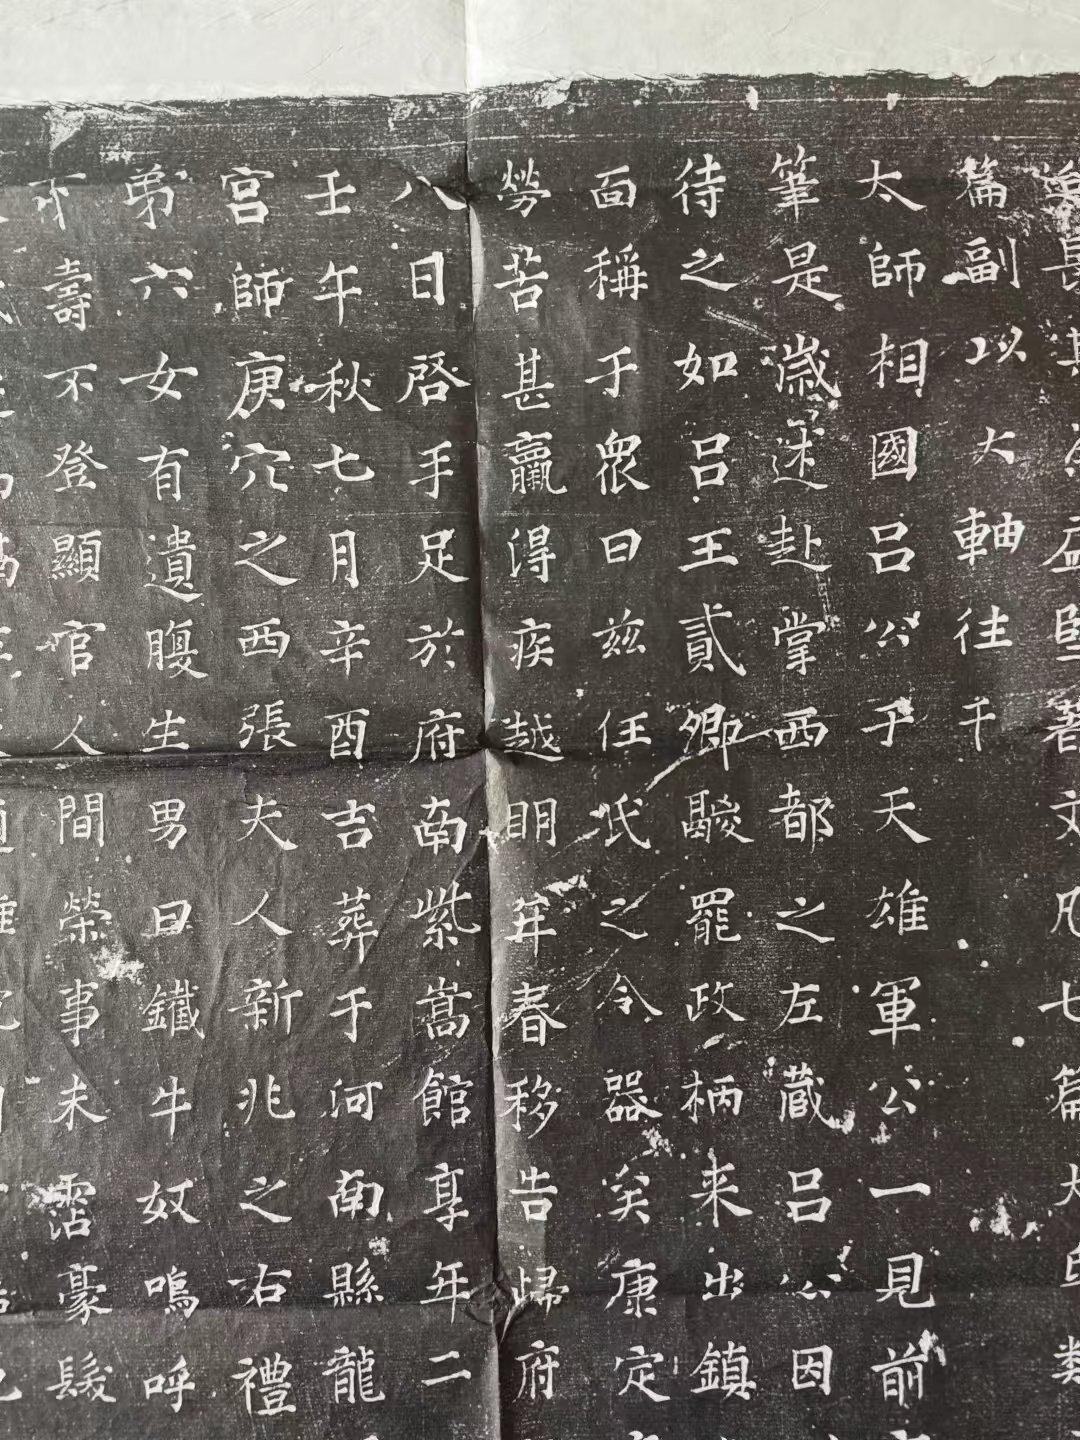 長其盛堅著文凡七篇大
篇副以大軸往干
太師相國呂公于天雄軍公一見前
筆是歲迷赴掌西都之左藏呂公因
待之如呂王貳卿酸罷政柄来出鎮
面稱于眾曰茲任氏之令器矣康定
勞苦甚羸得疾越明年春移告歸府
八日啓手足於府南紫嵩館享年二
壬午秋七月辛酉吉葬于河南縣龍
宮師庚穴之西張夫人新兆之右禮
弟六女有遺腹生男曰鐵牛奴嗚呼
不壽不登顯官人間榮事未霑豪髮